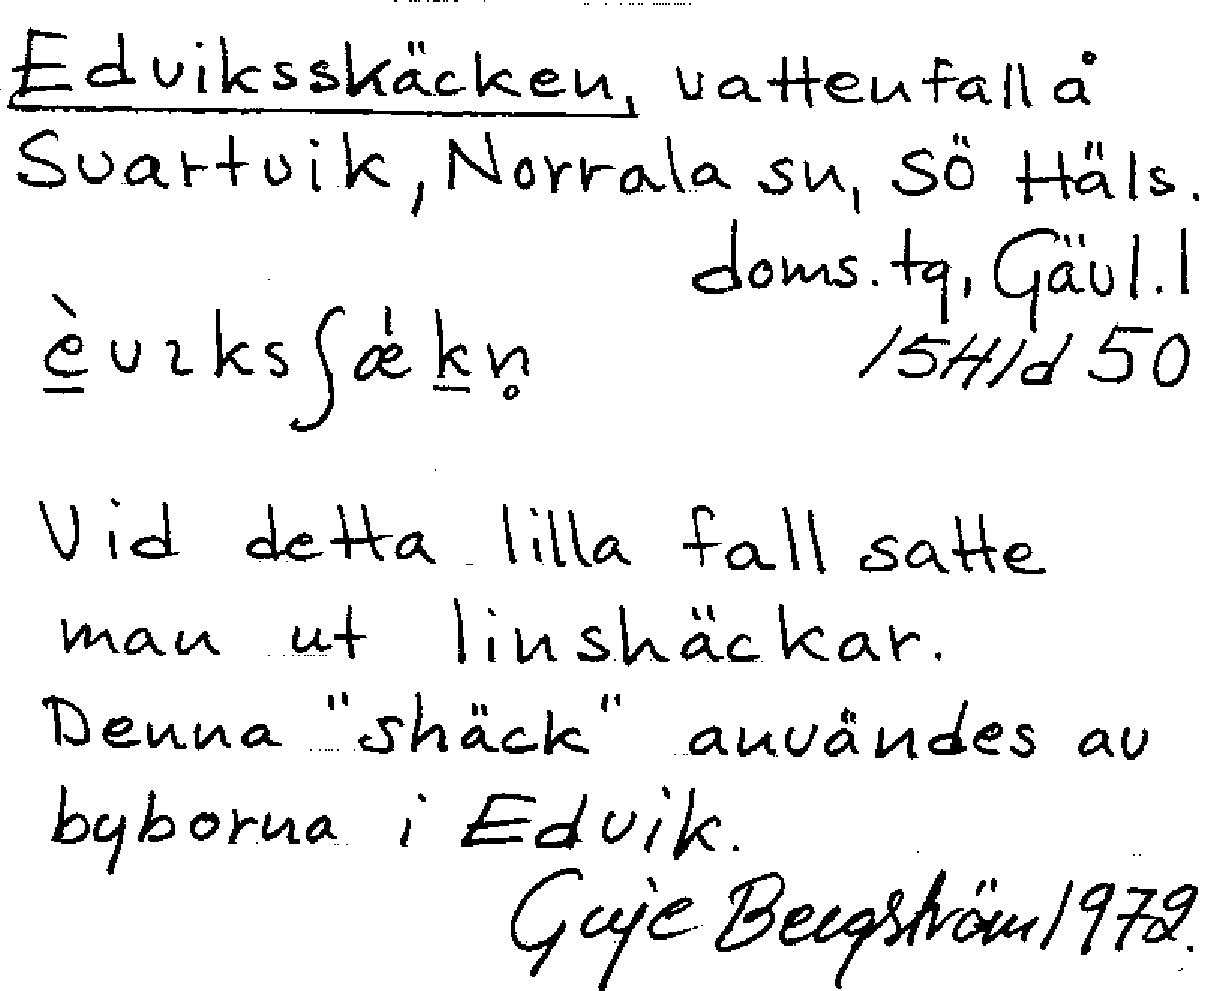 Edviksskäcken, vattenfall å
Svartvik, Norrala sn, Sö Häls.
doms. tg, Gävl. l
15H1d 50
Vid detta lilla fall satte
man ut linshäckar.
Denna "shäck" användes av
byborna i Edvik.
Guje Bergström 1972.